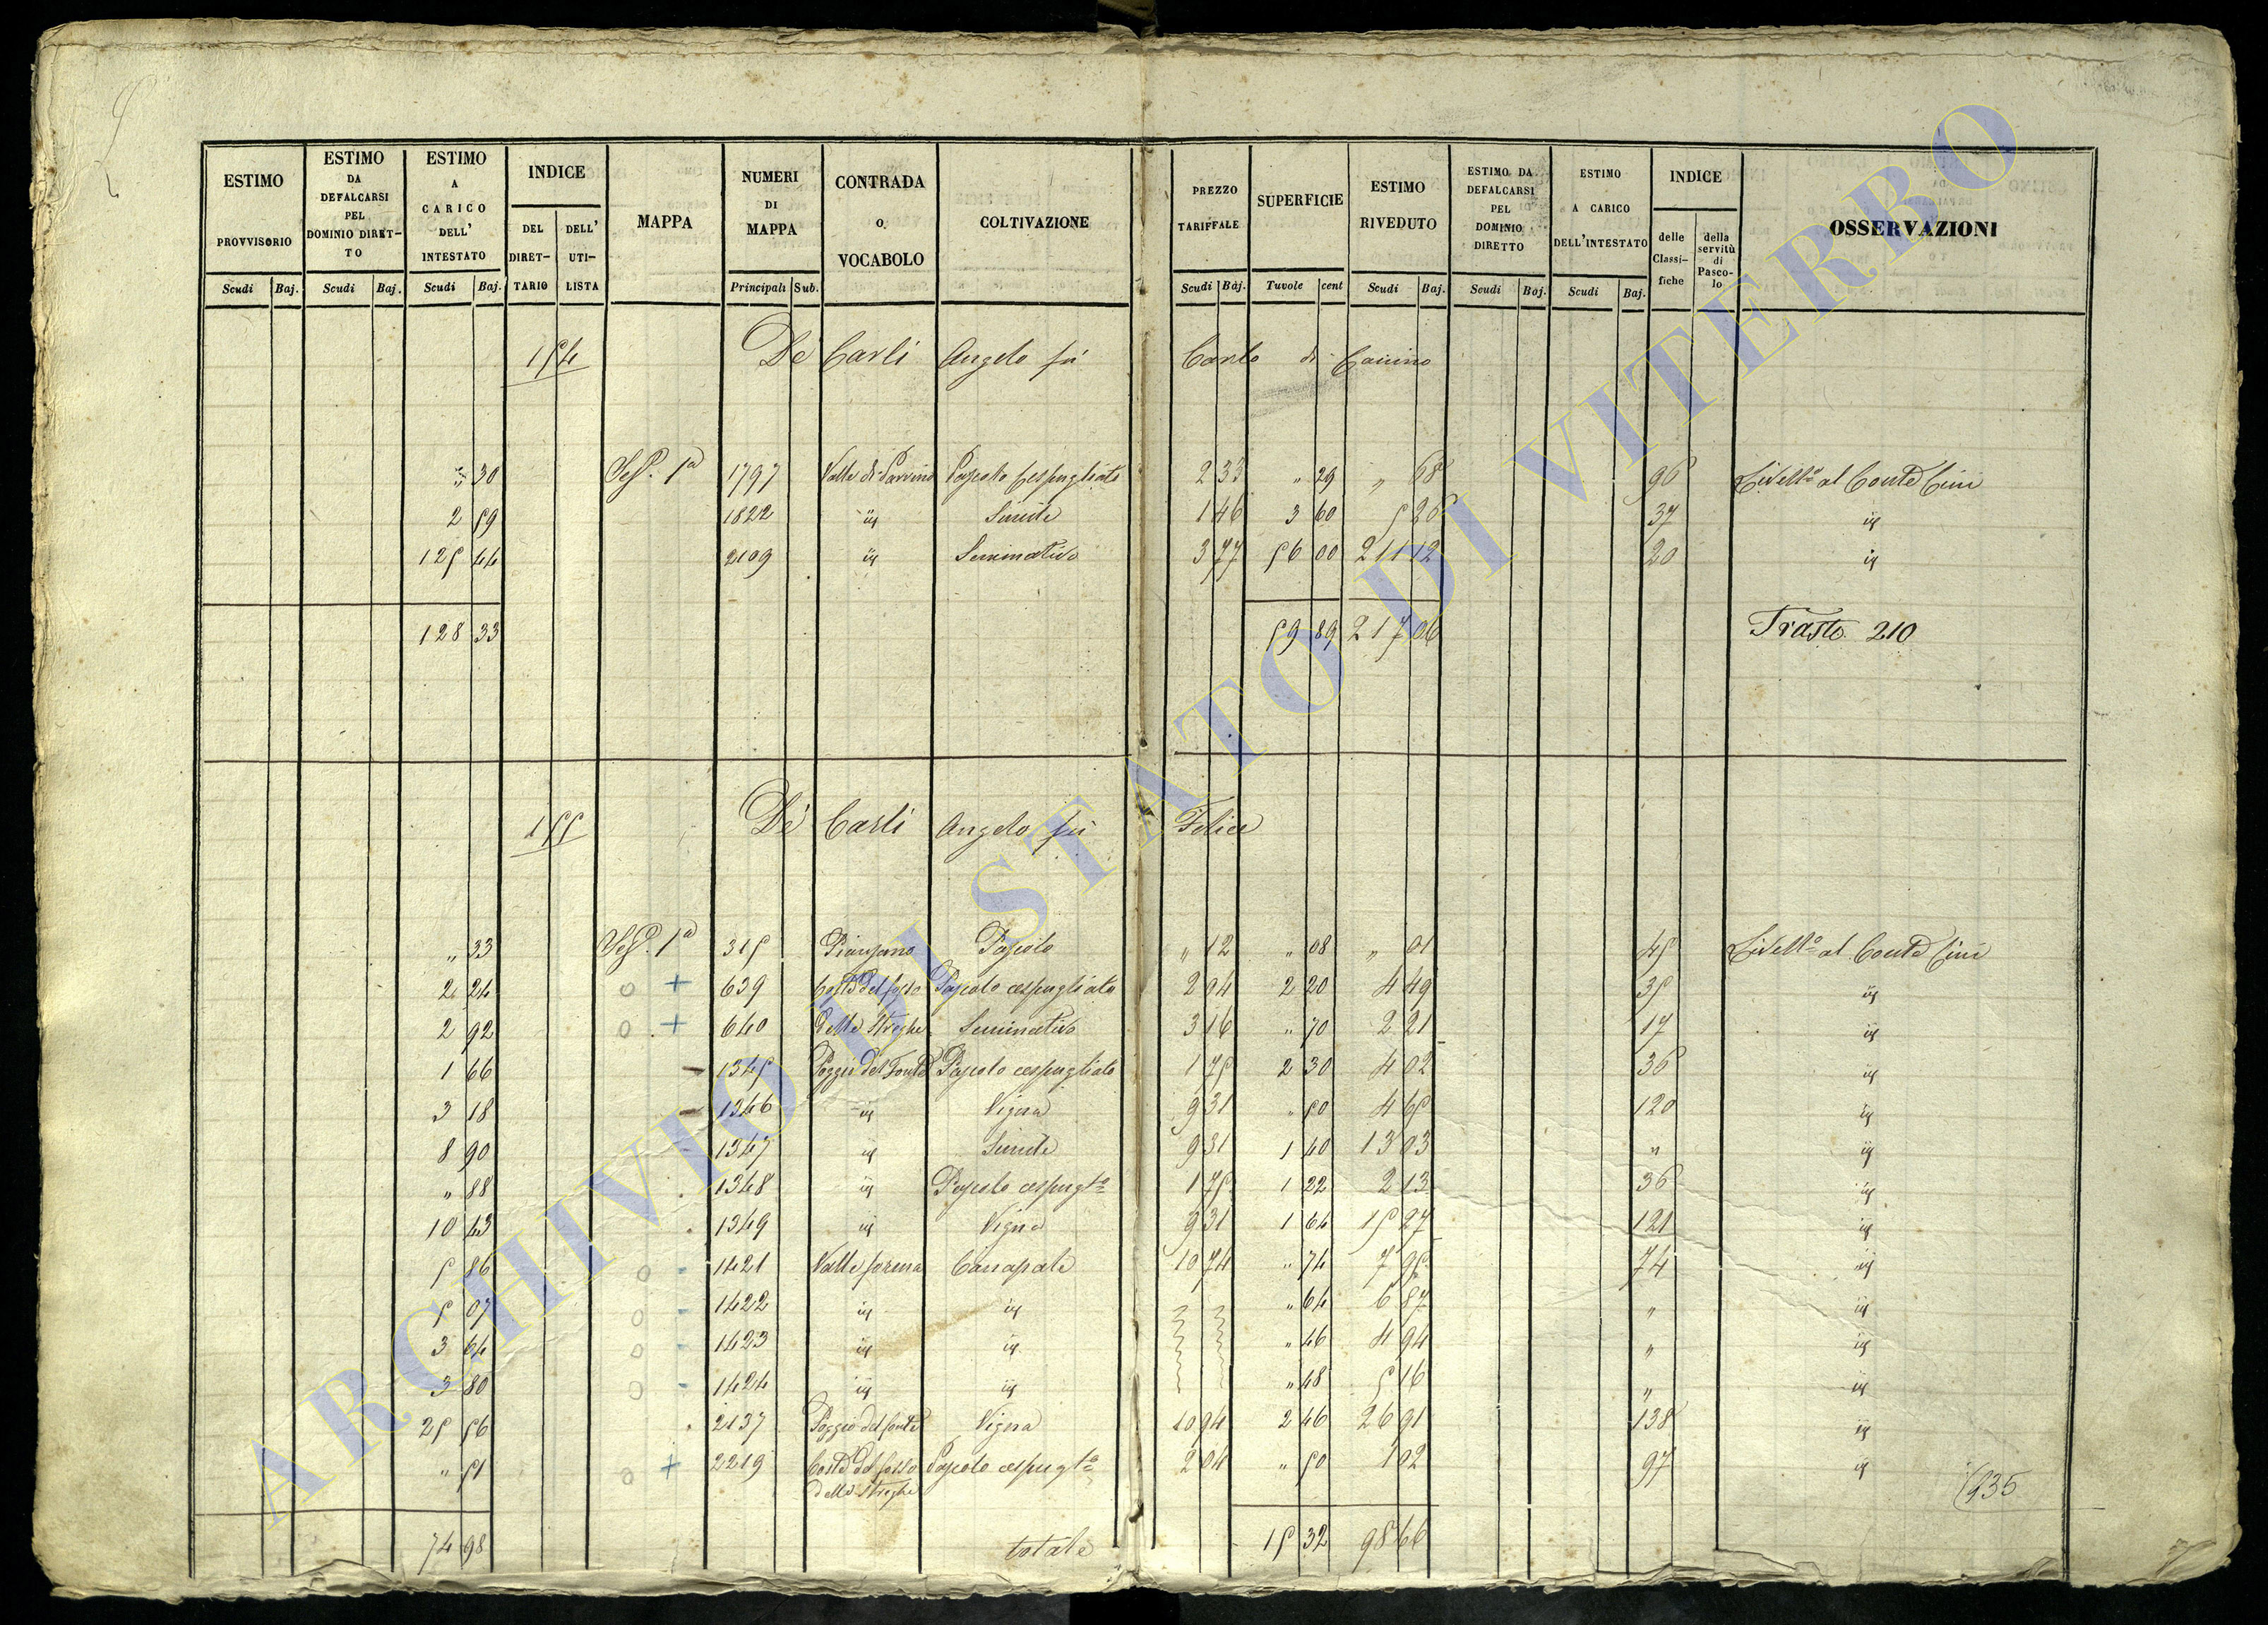 ESTIMO PROVVISORIO Scudi Baj. | ESTIMO DA DEFALCARSI PEL DOMINIO DIRET-TO Scudi Baj. | ESTIMO A CARICO DELL' INTESTATO Scudi Baj. | INDICE DEL DIRET-TARIO DELL' UTI-LISTA | MAPPA | NUMERI DI MAPPA Principali Sub. | CONTRADA O VOCABOLO | COLTIVAZIONE | PREZZO TARIFFALE Scudi Baj. | SUPERFICIE Tavole cent | ESTIMO RIVEDUTO Scudi Baj. | ESTIMO DA DEFALCARSI PEL DOMINIO DIRETTO Scudi Baj. | ESTIMO A CARICO DELL'INTESTATO Scudi Baj. | INDICE delle Classi-fiche della servitù di Pasco-lo | OSSERVAZIONI
154 De Carli Angelo fù Carlo di Canino
" 30 Sez. 1a 1797 Valle di Pascolo cespugliato 2 33 " 29 " 68 96 Livello al Conte Cini
2 59 1822 id Simile 1 46 3 60 5 26 37 id
125 44 2109 id Seminativo 3 77 56 00 211 12 20 id
128 33 59 89 217 06 Trasto 210
155 De Carli Angelo fù Felice
" 33 Sez. 1a 315 Piansano Pascolo " 12 " 08 " 01 45 Livello al Conte Cini
2 24 O + 639 Costa del fosso Pascolo cespugliato 2 04 2 20 4 49 35 id
2 92 O + 640 delle Streghe Seminativo 3 16 " 70 2 21 17 id
1 66 - 1345 Poggio del Fonte Pascolo cespugliato 1 75 2 30 4 02 36 id
3 18 - 1346 id Vigna 9 31 " 50 4 65 120 id
8 90 - 1347 id Simile 9 31 1 40 13 03 " id
" 88 1348 id Pascolo cespugto 1 75 1 22 2 13 36 id
10 43 1349 id Vigna 9 31 1 64 15 27 121 id
5 86 O - 1421 Valle forma Canapale 10 74 " 74 7 95 74 id
5 07 O - 1422 id id " 64 6 87 " id
3 64 O - 1423 id id " 46 4 94 " id
3 80 O - 1424 id id " 48 5 16 " id
25 56 2137 Poggio del fonte Vigna 10 94 2 46 26 91 138 id
" 51 O + 2219 Costa del fosso delle Streghe Pascolo cespugto 2 04 " 50 1 02 97 id
135
74 98 totale 15 32 98 66
ARCHIVIO DI STATO DI VITERBO